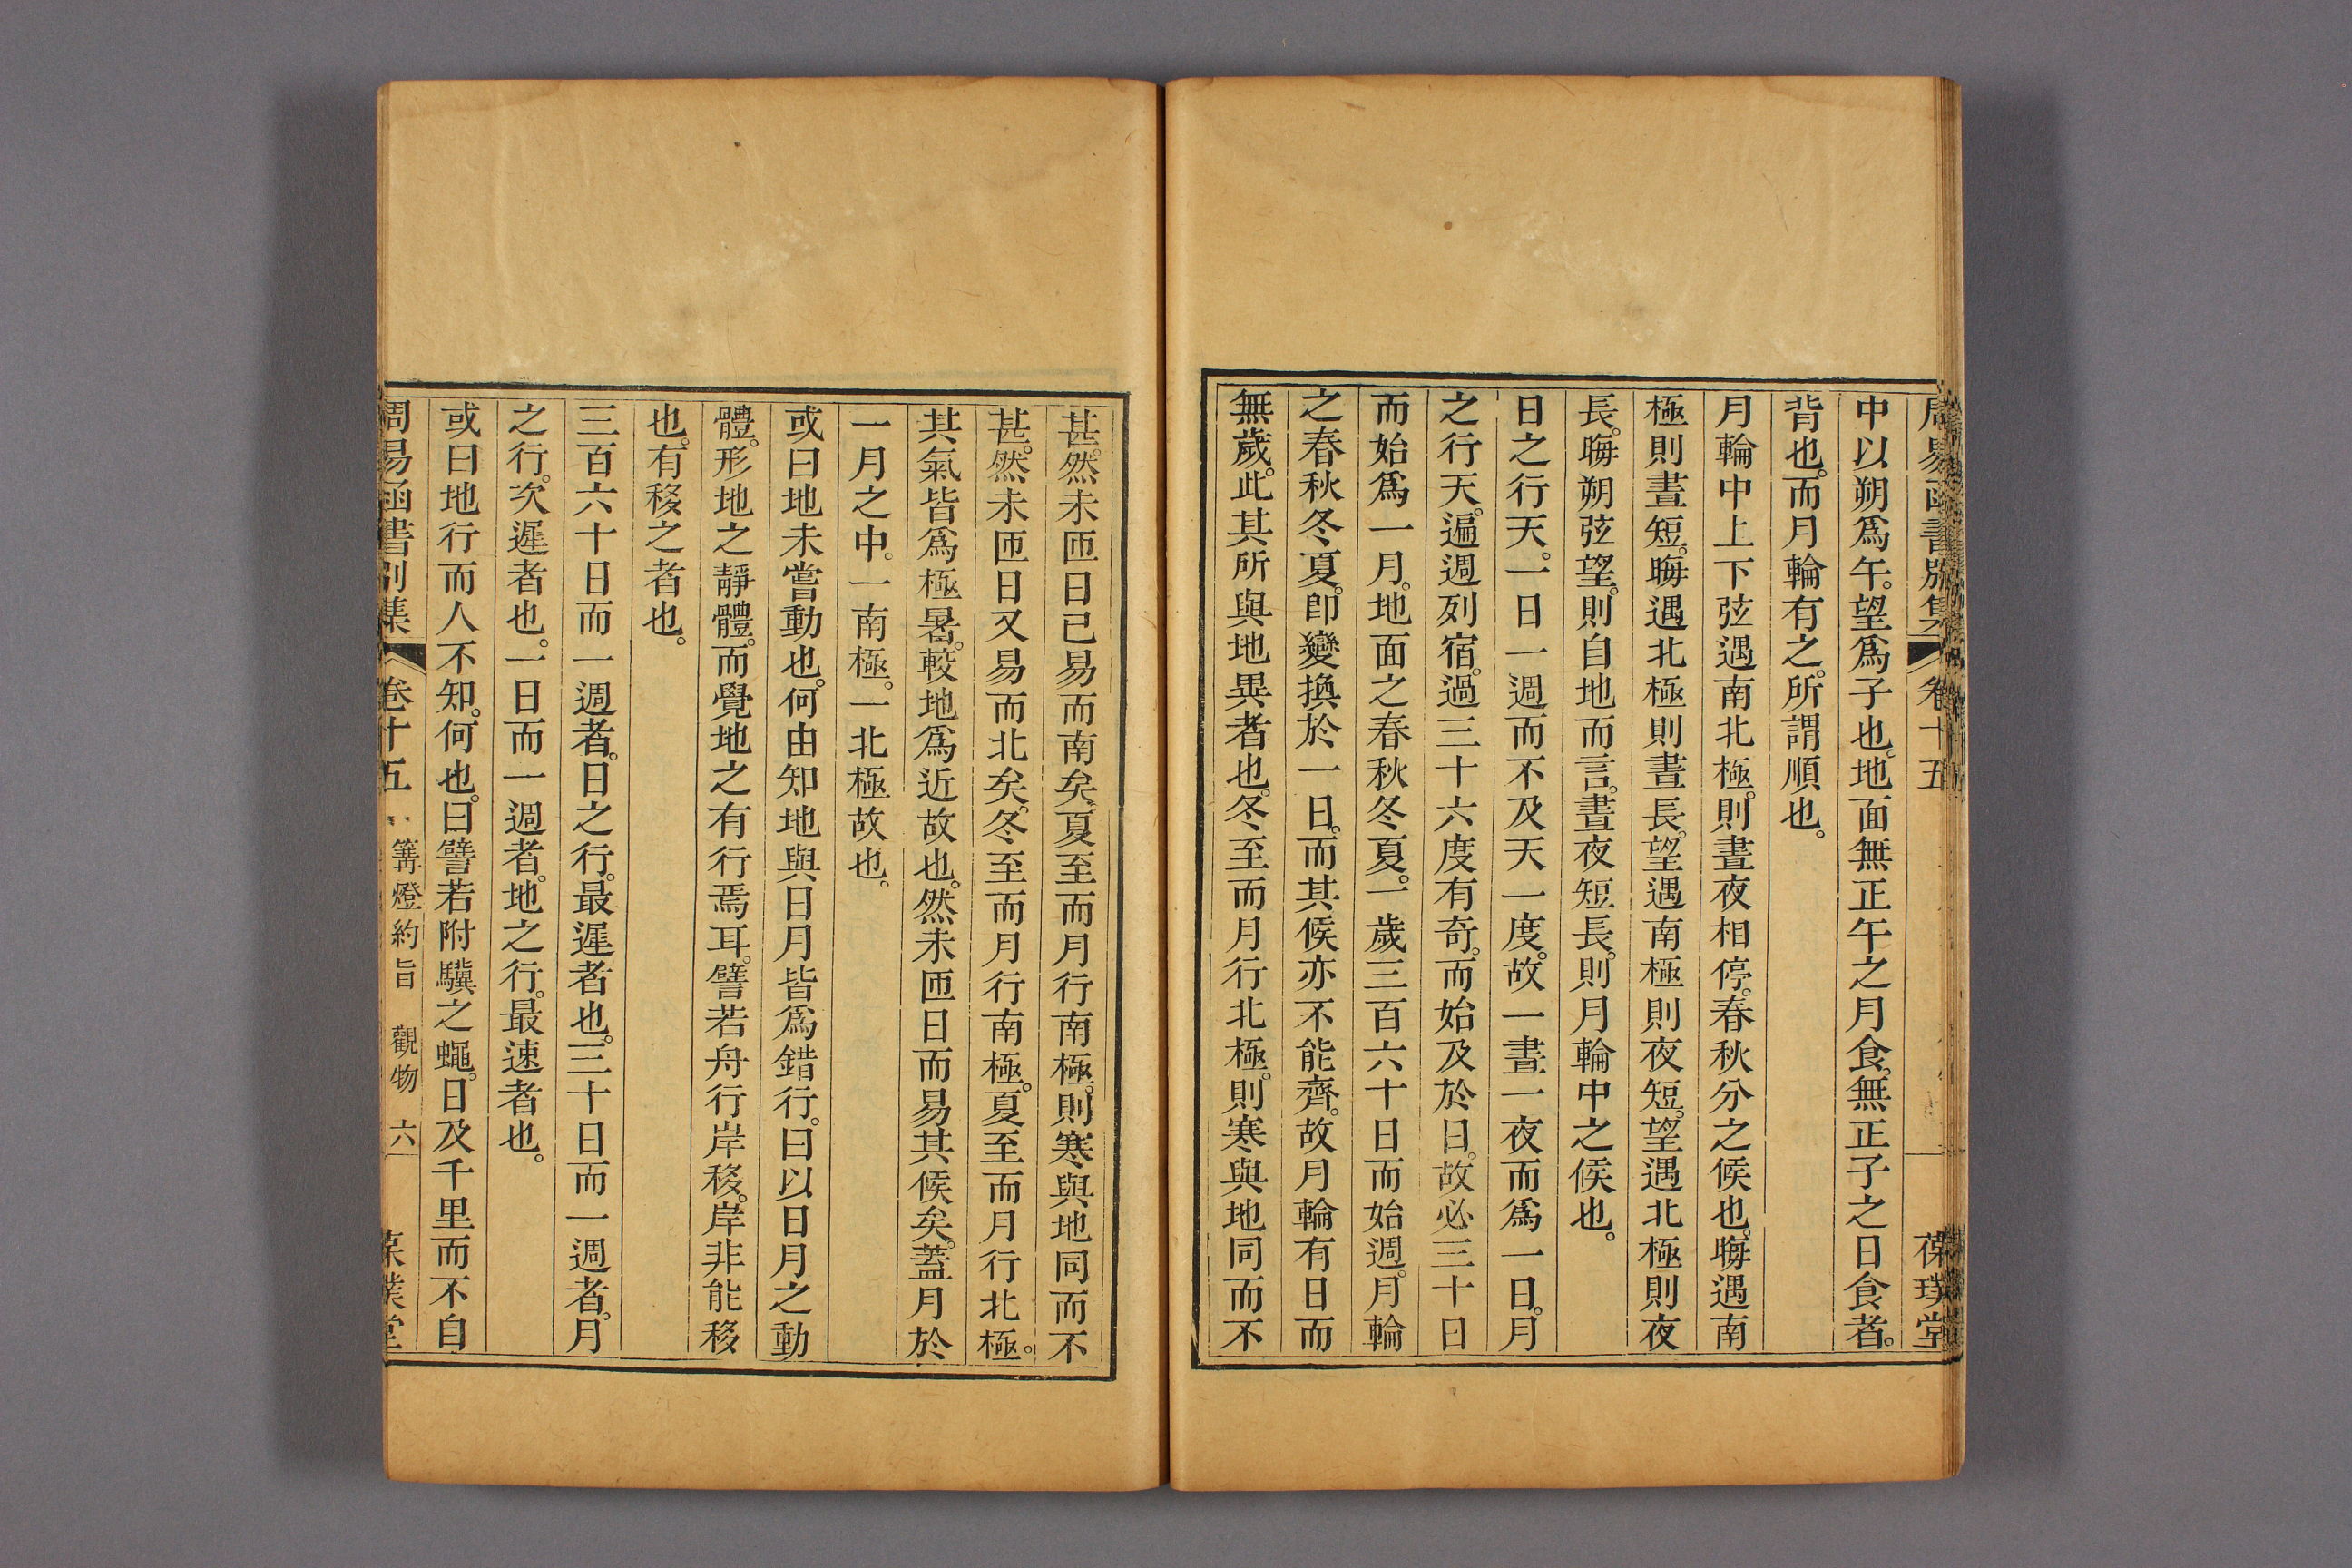 周易函書別集 卷十五 葆璞堂
中以朔爲午。望爲子也。地面無正午之月食。無正子之日食者。
背也。而月輪有之。所謂順也。
月輪中上下弦遇南北極。則晝夜相停。春秋分之候也。晦遇南
極則晝短。晦遇北極則晝長。望遇南極則夜短。望遇北極則夜
長。晦朔弦望。則自地而言。晝夜短長。則月輪中之候也。
日之行天。一日一週而不及天一度。故一晝一夜而爲一日。月
之行天。遍週列宿。過三十六度有奇。而始及於日。故必三十日
而始爲一月。地面之春秋冬夏。一歲三百六十日而始週。月輪
之春秋冬夏。卽變換於一日。而其候亦不能齊。故月輪有日而
無歲。此其所與地異者也。冬至而月行北極。則寒與地同而不
甚。然未匝日已易而南矣。夏至而月行南極。則寒與地同而不
甚。然未匝日又易而北矣。冬至而月行南極。夏至而月行北極。
其氣皆爲極暑。較地爲近故也。然未匝日而易其候矣。蓋月於
一月之中。一南極。一北極故也。
或曰地未嘗動也。何由知地與日月皆爲錯行。曰以日月之動
體。形地之靜體。而覺地之有行焉耳。譬若舟行岸移。岸非能移
也。有移之者也。
三百六十日而一週者。日之行。最遲者也。三十日而一週者。月
之行。次遲者也。一日而一週者。地之行。最速者也。
或曰地行而人不知。何也。曰譬若附驥之蠅。日及千里而不自
周易函書別集 卷十五 篝燈約旨 觀物 六 葆璞堂